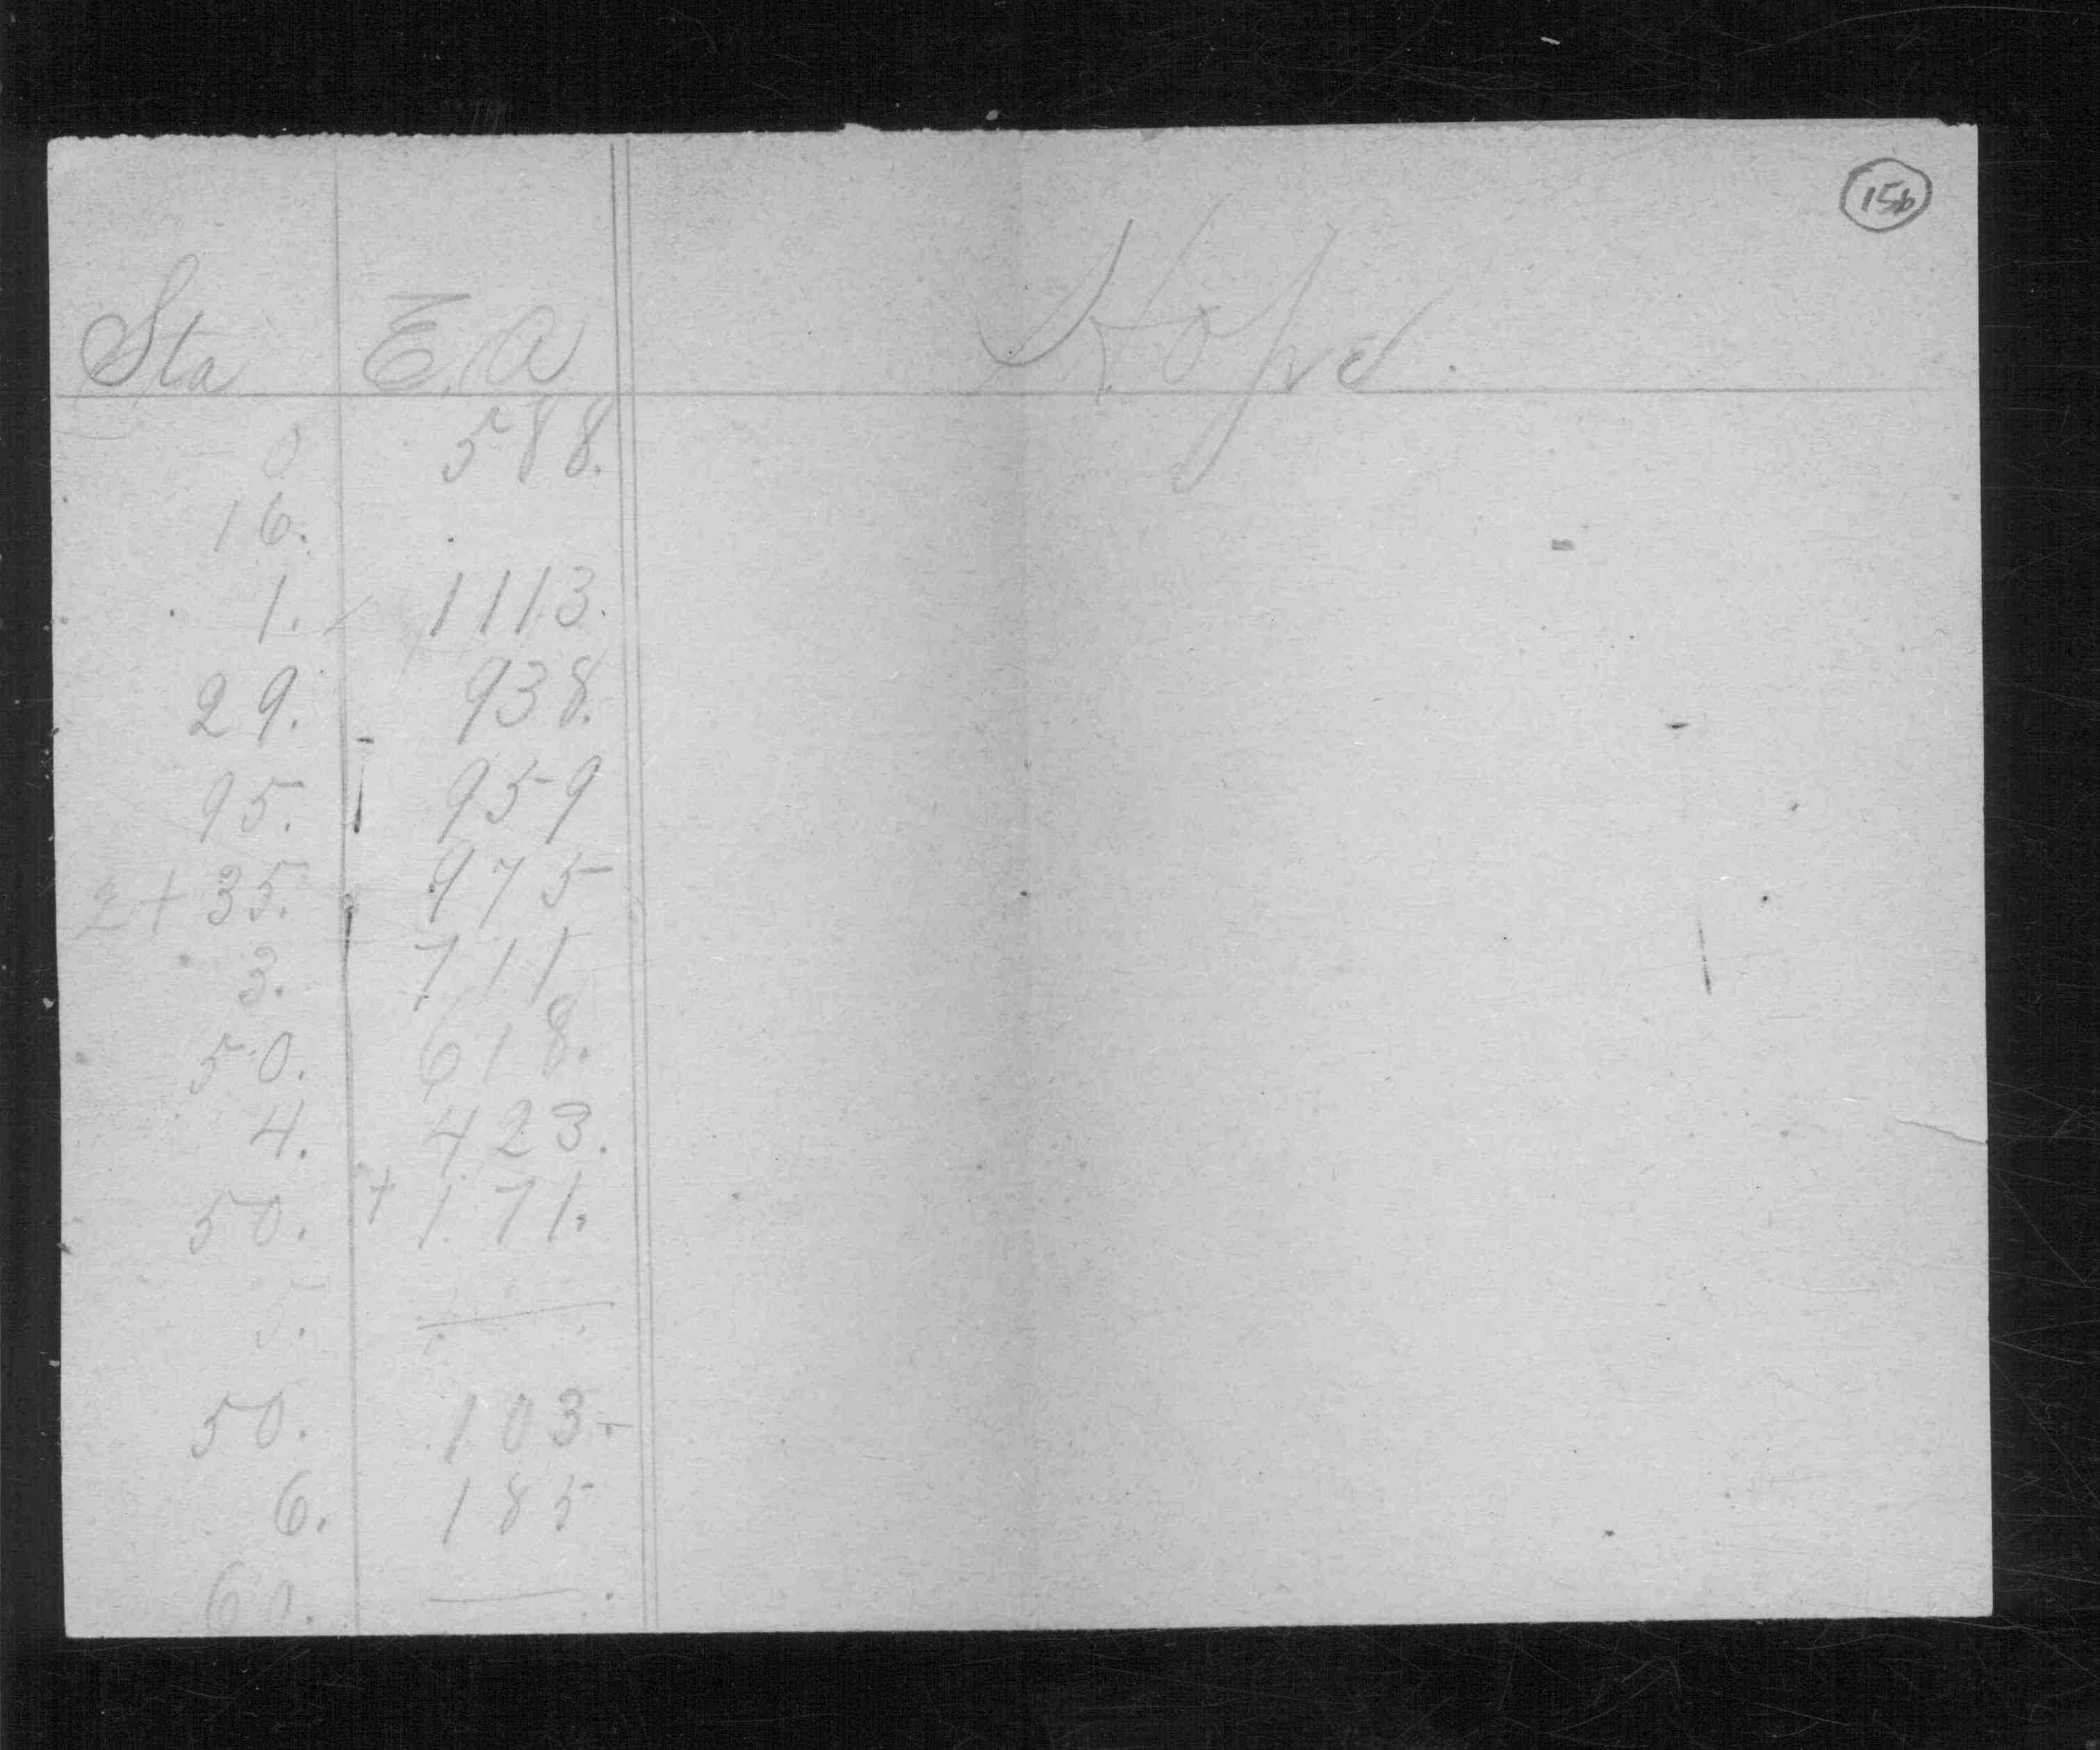 15b
Sta E.A Hope.
0 588.
16.
1. 1113.
29. 938.
95. 959
2 + 35. 975
3. 711
50. 618.
4. 423.
50. + 171.
5. —
50. 103.-
6. 185
60. —